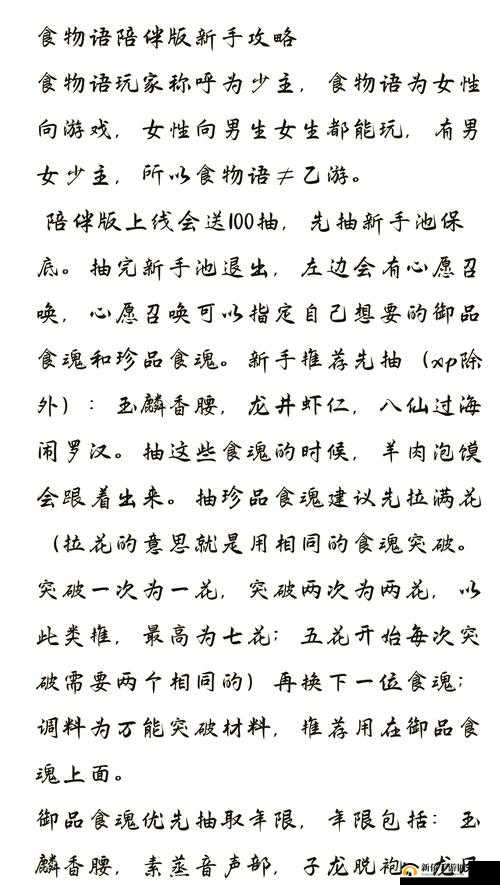 食物语陪伴版新手攻略
食物语玩家称呼为少主，食物语为女性
向游戏，女性向男生女生都能玩，有男
女少主，所以食物语≠乙游。
陪伴版上线会送100抽，先抽新手池保
底。抽完新手池退出，左边会有心愿召
唤，心愿召唤可以指定自己想要的御品
食魂和珍品食魂。新手推荐先抽（xp除
外）：玉麟香腰，龙井虾仁，八仙过海
闹罗汉。抽这些食魂的时候，羊肉泡馍
会跟着出来。抽珍品食魂建议先拉满花
（拉花的意思就是用相同的食魂突破。
突破一次为一花，突破两次为两花，以
此类推，最高为七花；五花开始每次突
破需要两个相同的）再换下一位食魂；
调料为万能突破材料，推荐用在御品食
魂上面。
御品食魂优先抽取年限，年限包括：玉
麟香腰，素蒸音声部，子龙脱袍，龙